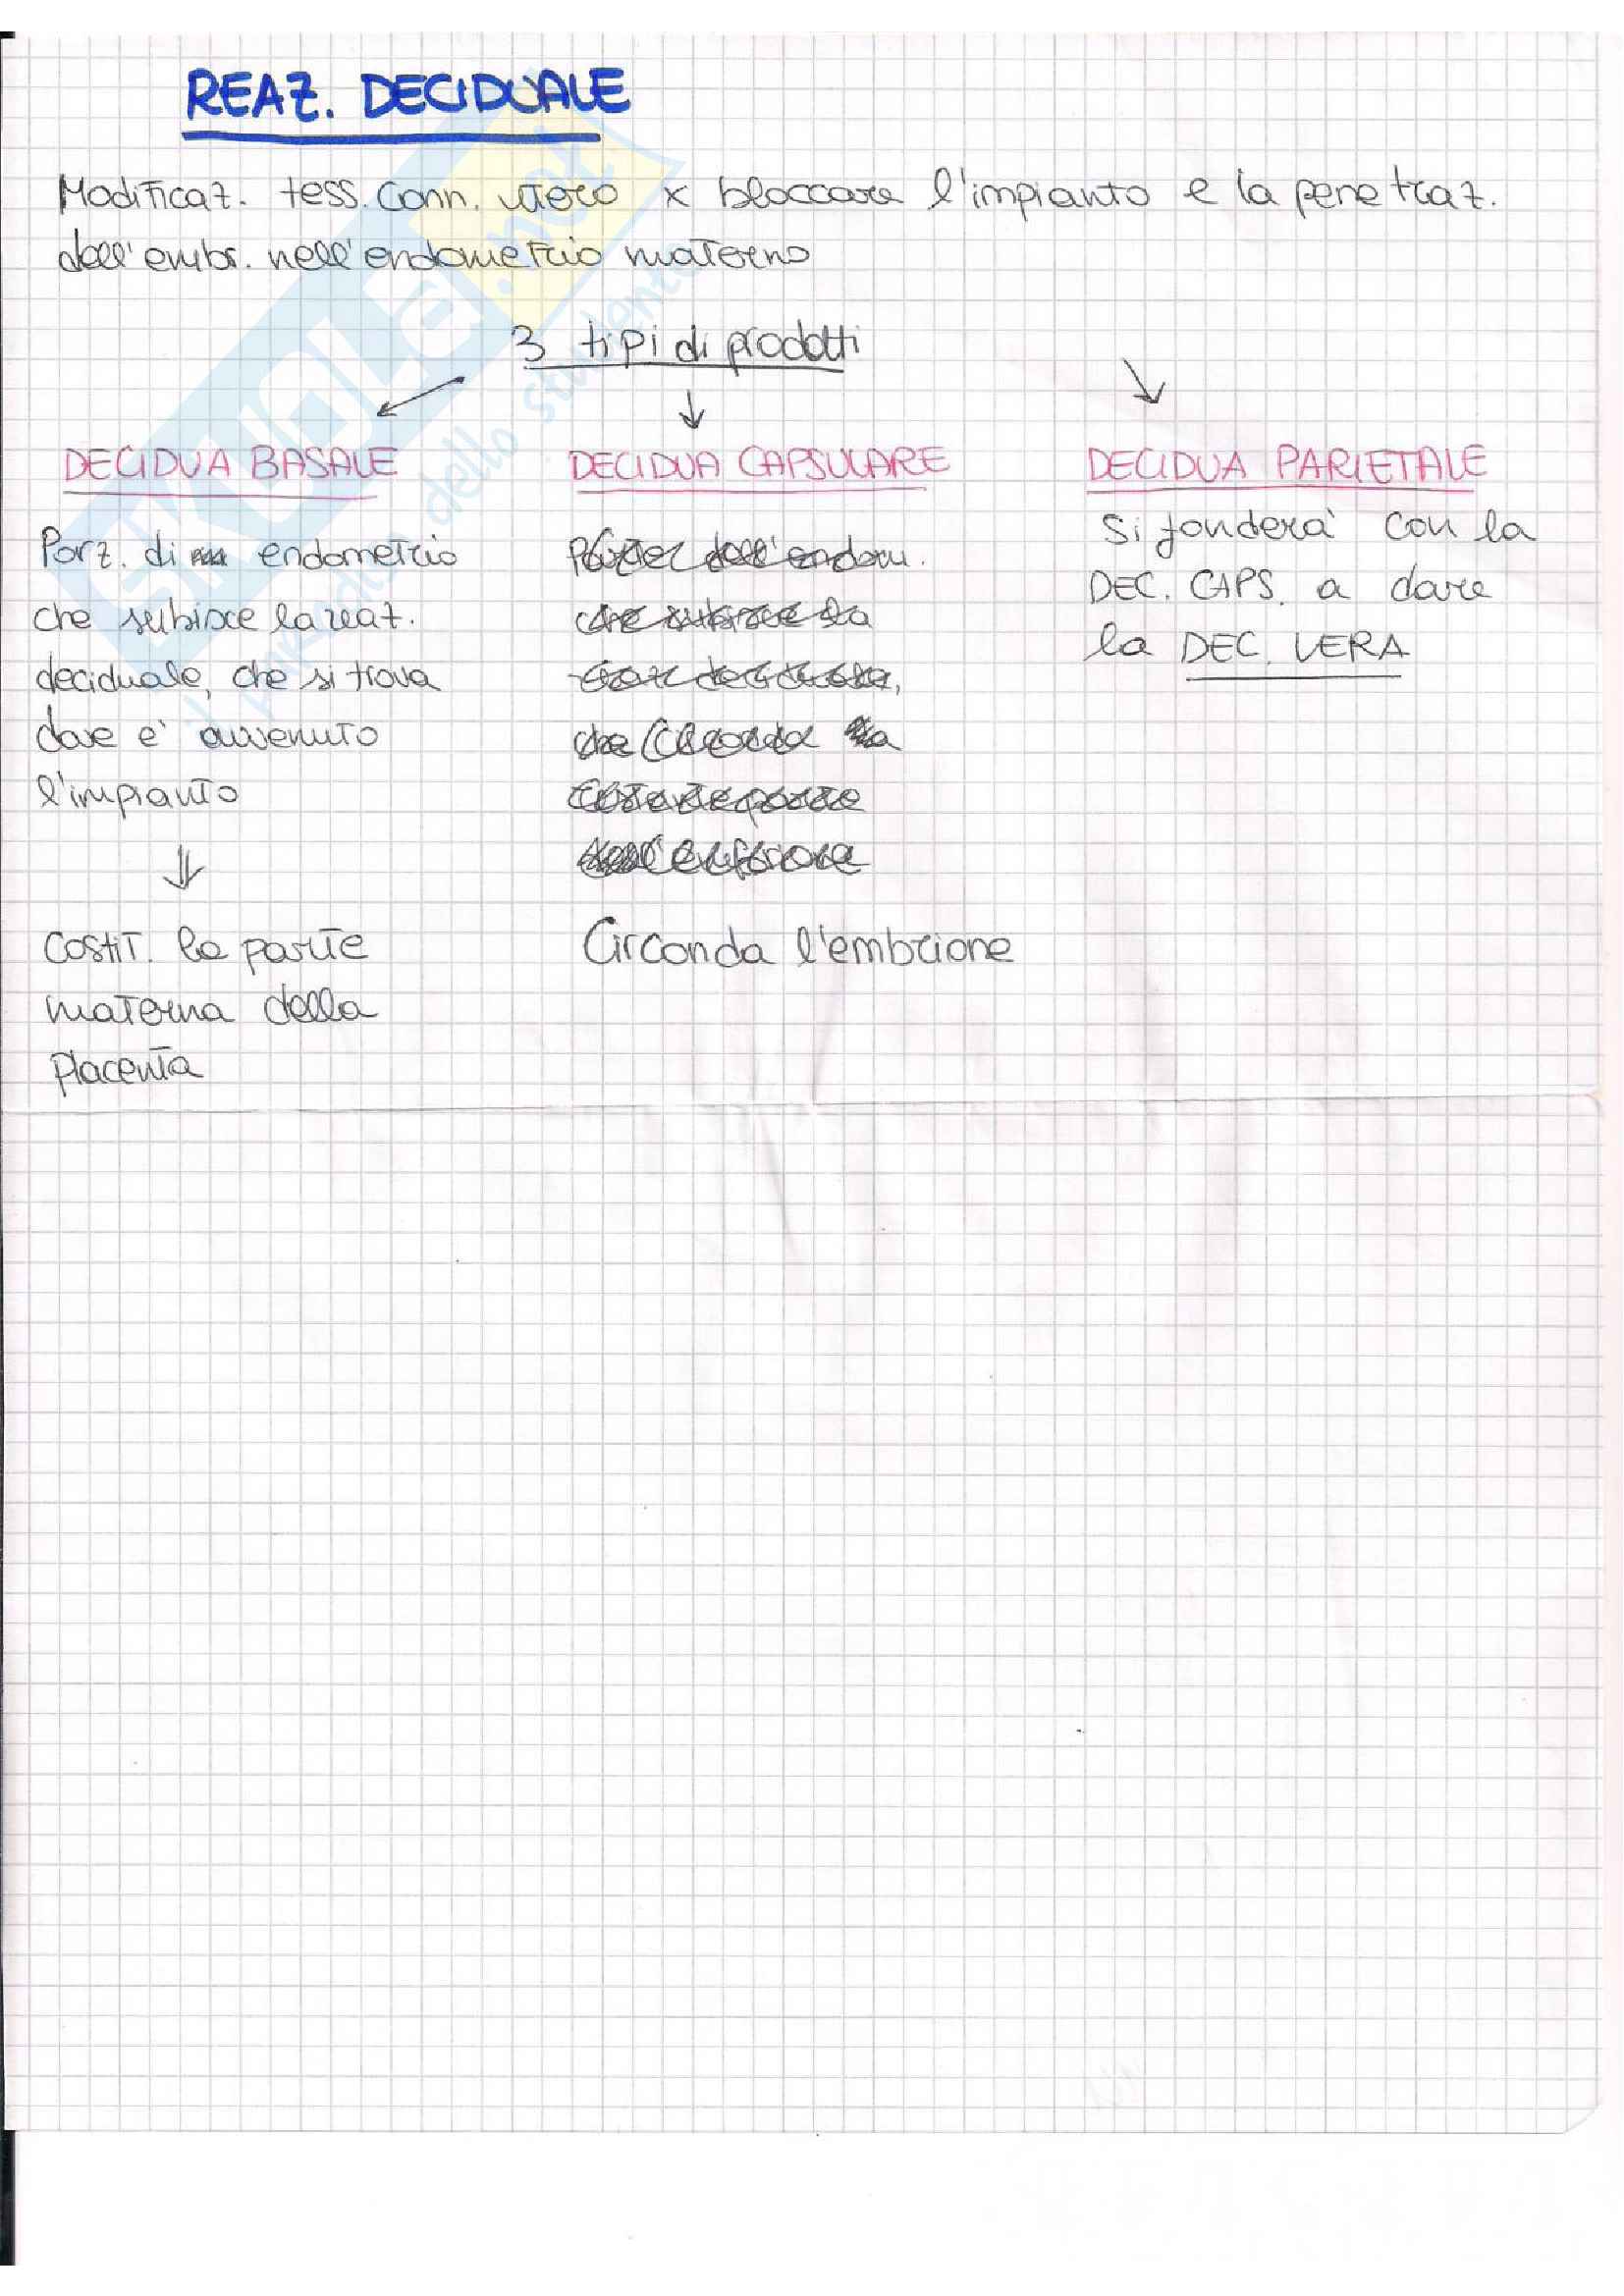 REAZ. DECIDUALE
Modificaz. tess. conn. utero x bloccare l'impianto e la penetraz.
dell'embr. nell'endometrio materno
3 tipi di prodotti
DECIDUA BASALE
Porz. di endometrio
che subisce la reaz.
deciduale, che si trova
dove e' avvenuto
l'impianto
Costit. la parte
materna della
placenta
DECIDUA CAPSULARE
dell'endom.
che subisce la
Circonda l'embrione
DECIDUA PARIETALE
Si fonderà con la
DEC. CAPS. a dare
la DEC. VERA
SKUOLA.net
il paradiso dello studente